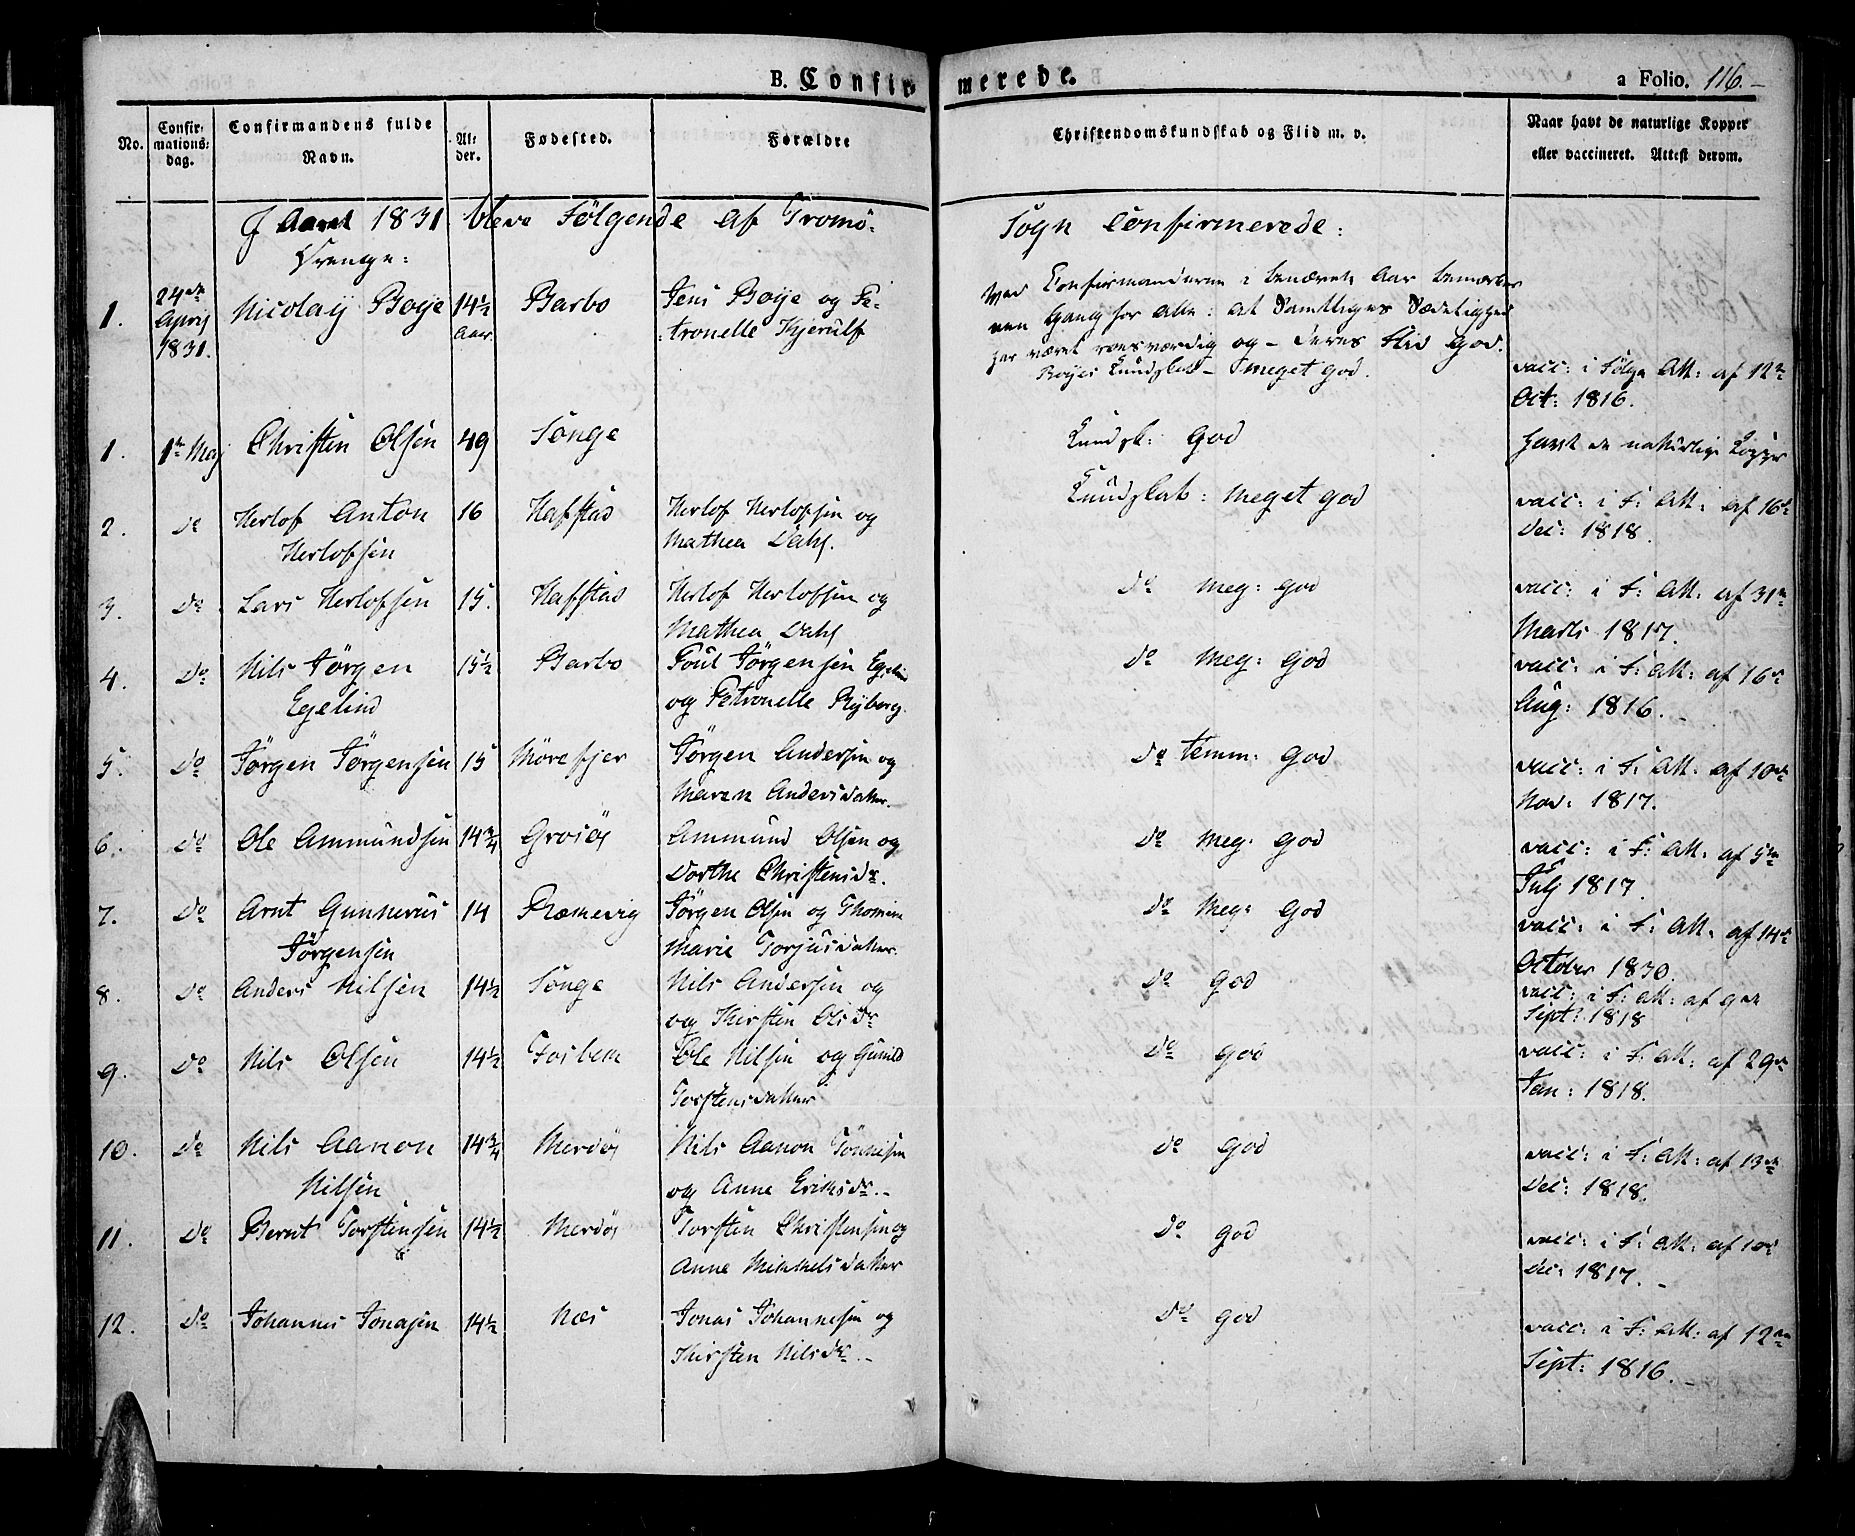 B. Confirmerede.
a Folio. 116.
No. Confirmationsdag. Confirmandens fulde Navn. Alder. Fødested. Forældre Christendomskundskab og Flid m. v. Naar havt de naturlige Kopper eller vaccineret. Attest derom.
I Aaret 1831 bleve Følgende af Tromö-Sogn Confirmerede:
Drenge:
1. 24de April 1831. Nicolaij Boye 14½ Aar. Barbo Jens Boye og Petronelle Kjerulf
Ved Confirmanderne i benævnte Aar bemærkes
een Gang for alle: at Samtliges Sædelighed
har været roesværdig og – deres Flid god.
Boyes Kundskab – meget god.
vacc: i Følge Att: af 12te
Oct: 1816.
1. 1te Maj Christen Olsen 49 Songe Kundsk: god havt de naturlige Kopper
2. do Herlof Anton Herlofsen 16 Hafstad Herlof Herlofsen og Mathea Dahl. Kundskab: meget god vacc: i F: Att: af 16de Dec: 1818.
3. Do Lars Herlofsen 15. Hafstad Herlof Herlofsen og Mathea Dahl do meg: god vacc: i F: Att: af 31te Marts 1817.
4. Do Nils Jörgen Egelind 15½ Barbo Poul Jörgensen Egelind og Petronelle Ryberg. do meg: god vacc: i F: Att: af 16de Aug: 1816.
5. Do Jörgen Jörgensen 15 Mörefjer Jörgen Andersen og Maren Andersdatter. do temm: god vacc: i F: Att: af 10de Nov: 1817.
6. Do Ole Ammundsen 14¾ Grosöj Ammund Olsen og Dorthe Christensdr. do meg: god vacc: i F: Att: af 5te Julj 1817.
7. Do Arnt Gunnerus Jörgensen 14 Ræmevig Jörgen Olsen og Thomine Marie Torjusdatter. do meg: god vacc: i F: Att: af 14de October 1830.
8. Do Anders Nilsen 14½ Songe Nils Andersen og og Thirsten Olsdr do god vacc: i F: Att: af 9de Sept: 1818
9. Do Nils Olsen 14½ Fosbem Ole Nilsen og Gunild Torstensdatter do god vacc: i F: Att: af 29de Jan: 1818.
10. Do Nils Aanon Nilsen 14¾ Merdöj Nils Aanon Tönnesen og Anne Eriksdr. do god vacc: i F: Att: af 13de Dec: 1818.
11. Do Bernt Torstensen 14½ Merdöj Torsten Christensen og Anne Mikkelsdatter do god vacc: i F: Att: af 10de dec: 1817.
12. Do Johannes Jonasen 14½ Næs Jonas Johannesen og Thirsten Nilsdr. do god vacc: i F: Att: af 12te Sept: 1816.